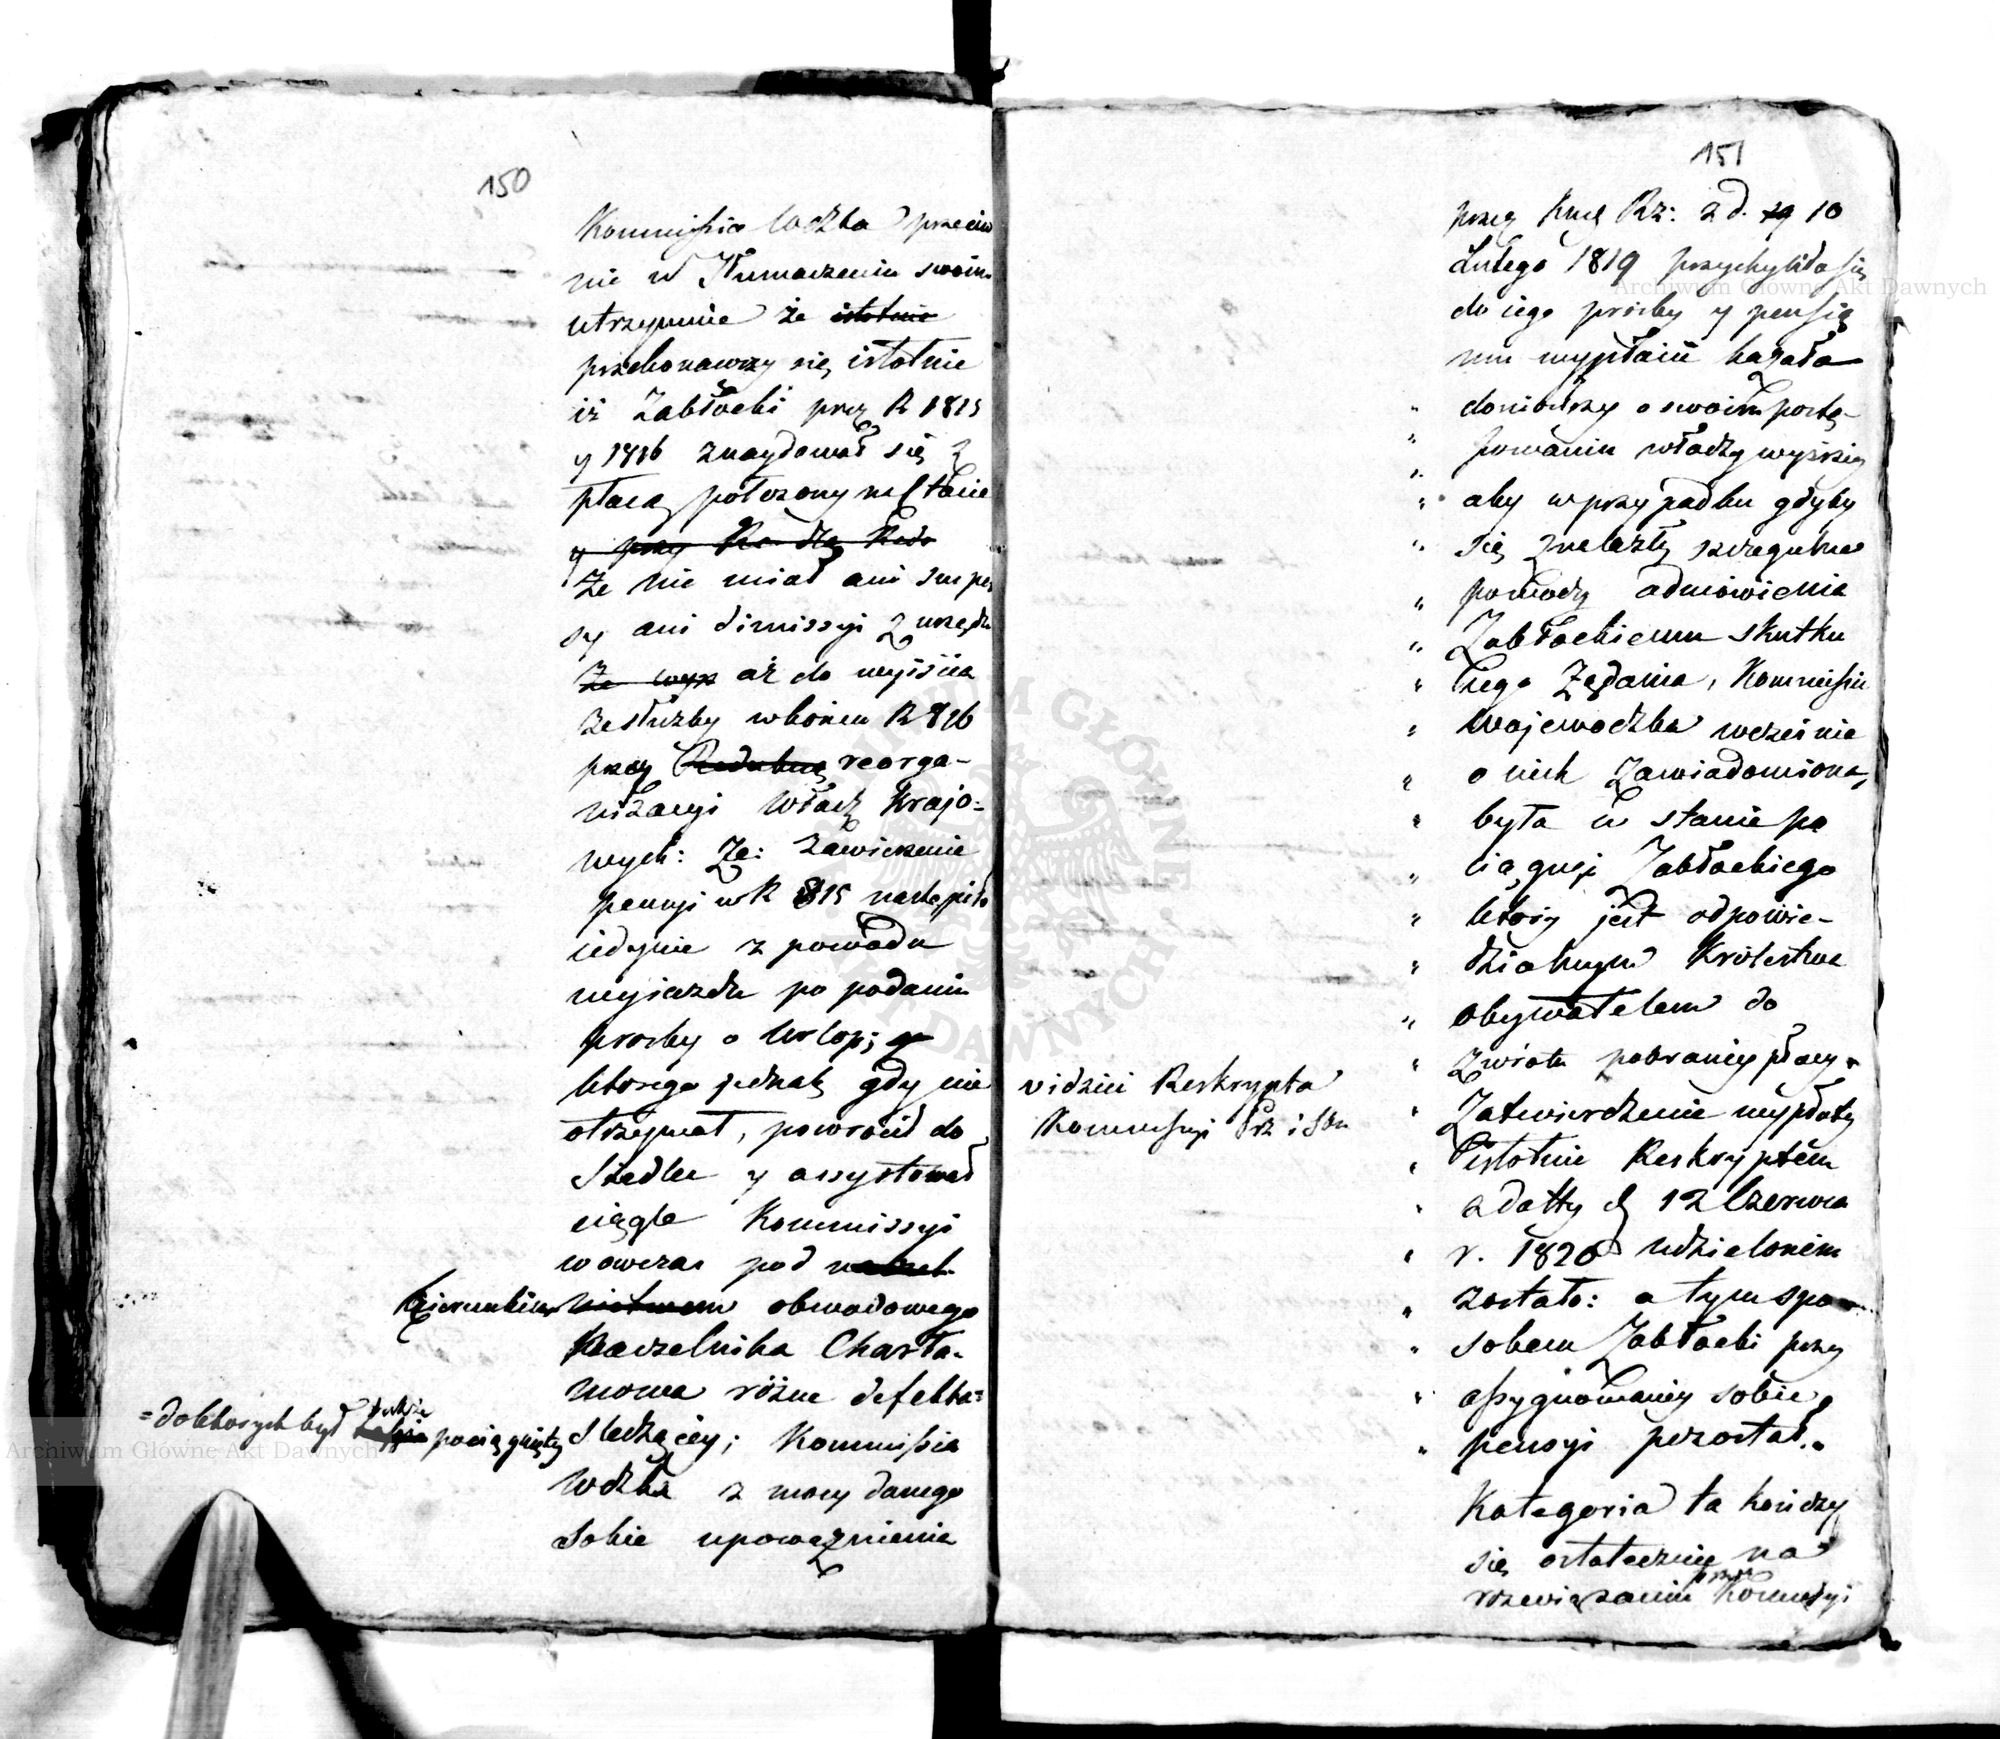 150
Kommissia Wdzka przeciw
nie w Tłumaczeniu swoim
utrzymuie że istotnie
przekonawszy się istotnie
iż Zabłocki przez R 1815
y 1816 znaydował się z
płacą położony na Etacie
y przy
że nie miał ani suspen
sy ani dimissyi z urzędu
że wyr aż do wyiścia
ze służby w końcu R 816
przy reorga-
nizacyi Władz Krajo-
wych: Że: zawieszenie
pensyi w R 815 nastąpiło
iedynie z powodu
wyiazdu po podaniu
prosby o Urlop;
ktorego jednak gdy nie
otrzymał, powrócił do
Siedlec y assystował
ciągle Kommissyi
wowczas pod
Kierunkiem obwodowego
Naczelnika Charła-
mowa różne defekta
= do ktorych był także pociągnięty
Sledzącey; Kommissia
Wdzka z mocy danego
Sobie upoważnienia
151
przez Rz: z d. 10
Lutego 1819 przychyliła się
do iego prosby y pensią
mu wypłacić kazała
" doniosłszy o swoim postę-
" powaniu władzy wyższey
" aby w przypadku gdyby
" się znalazły szczegulne
" powody odmowienia
" Zabłockiemu skutku
" iego Żądania, Kommissia
" Wojewodzka wcześnie
" o nich zawiadomiona,
" była w stanie po
" ciągnąć Zabłockiego
" który jest odpowie-
" dzialnym Królestwa
" obywatelem do
" Zwrotu pobraney płacy.
" Zatwierdzenie wypłaty
vidzieć Reskrypta
Kommissyi Prz i Skr
" istotnie Reskryptem
" z datty d 12 Czerwca
" r. 1820 udzielonem
" zostało: a tym spo-
" sobem Zabłocki przy
" assygnowaniu sobie
" pensyi pozostał."
Kategoria ta kończy
się ostatecznie na
rozwiązaniu przez Kommissyi